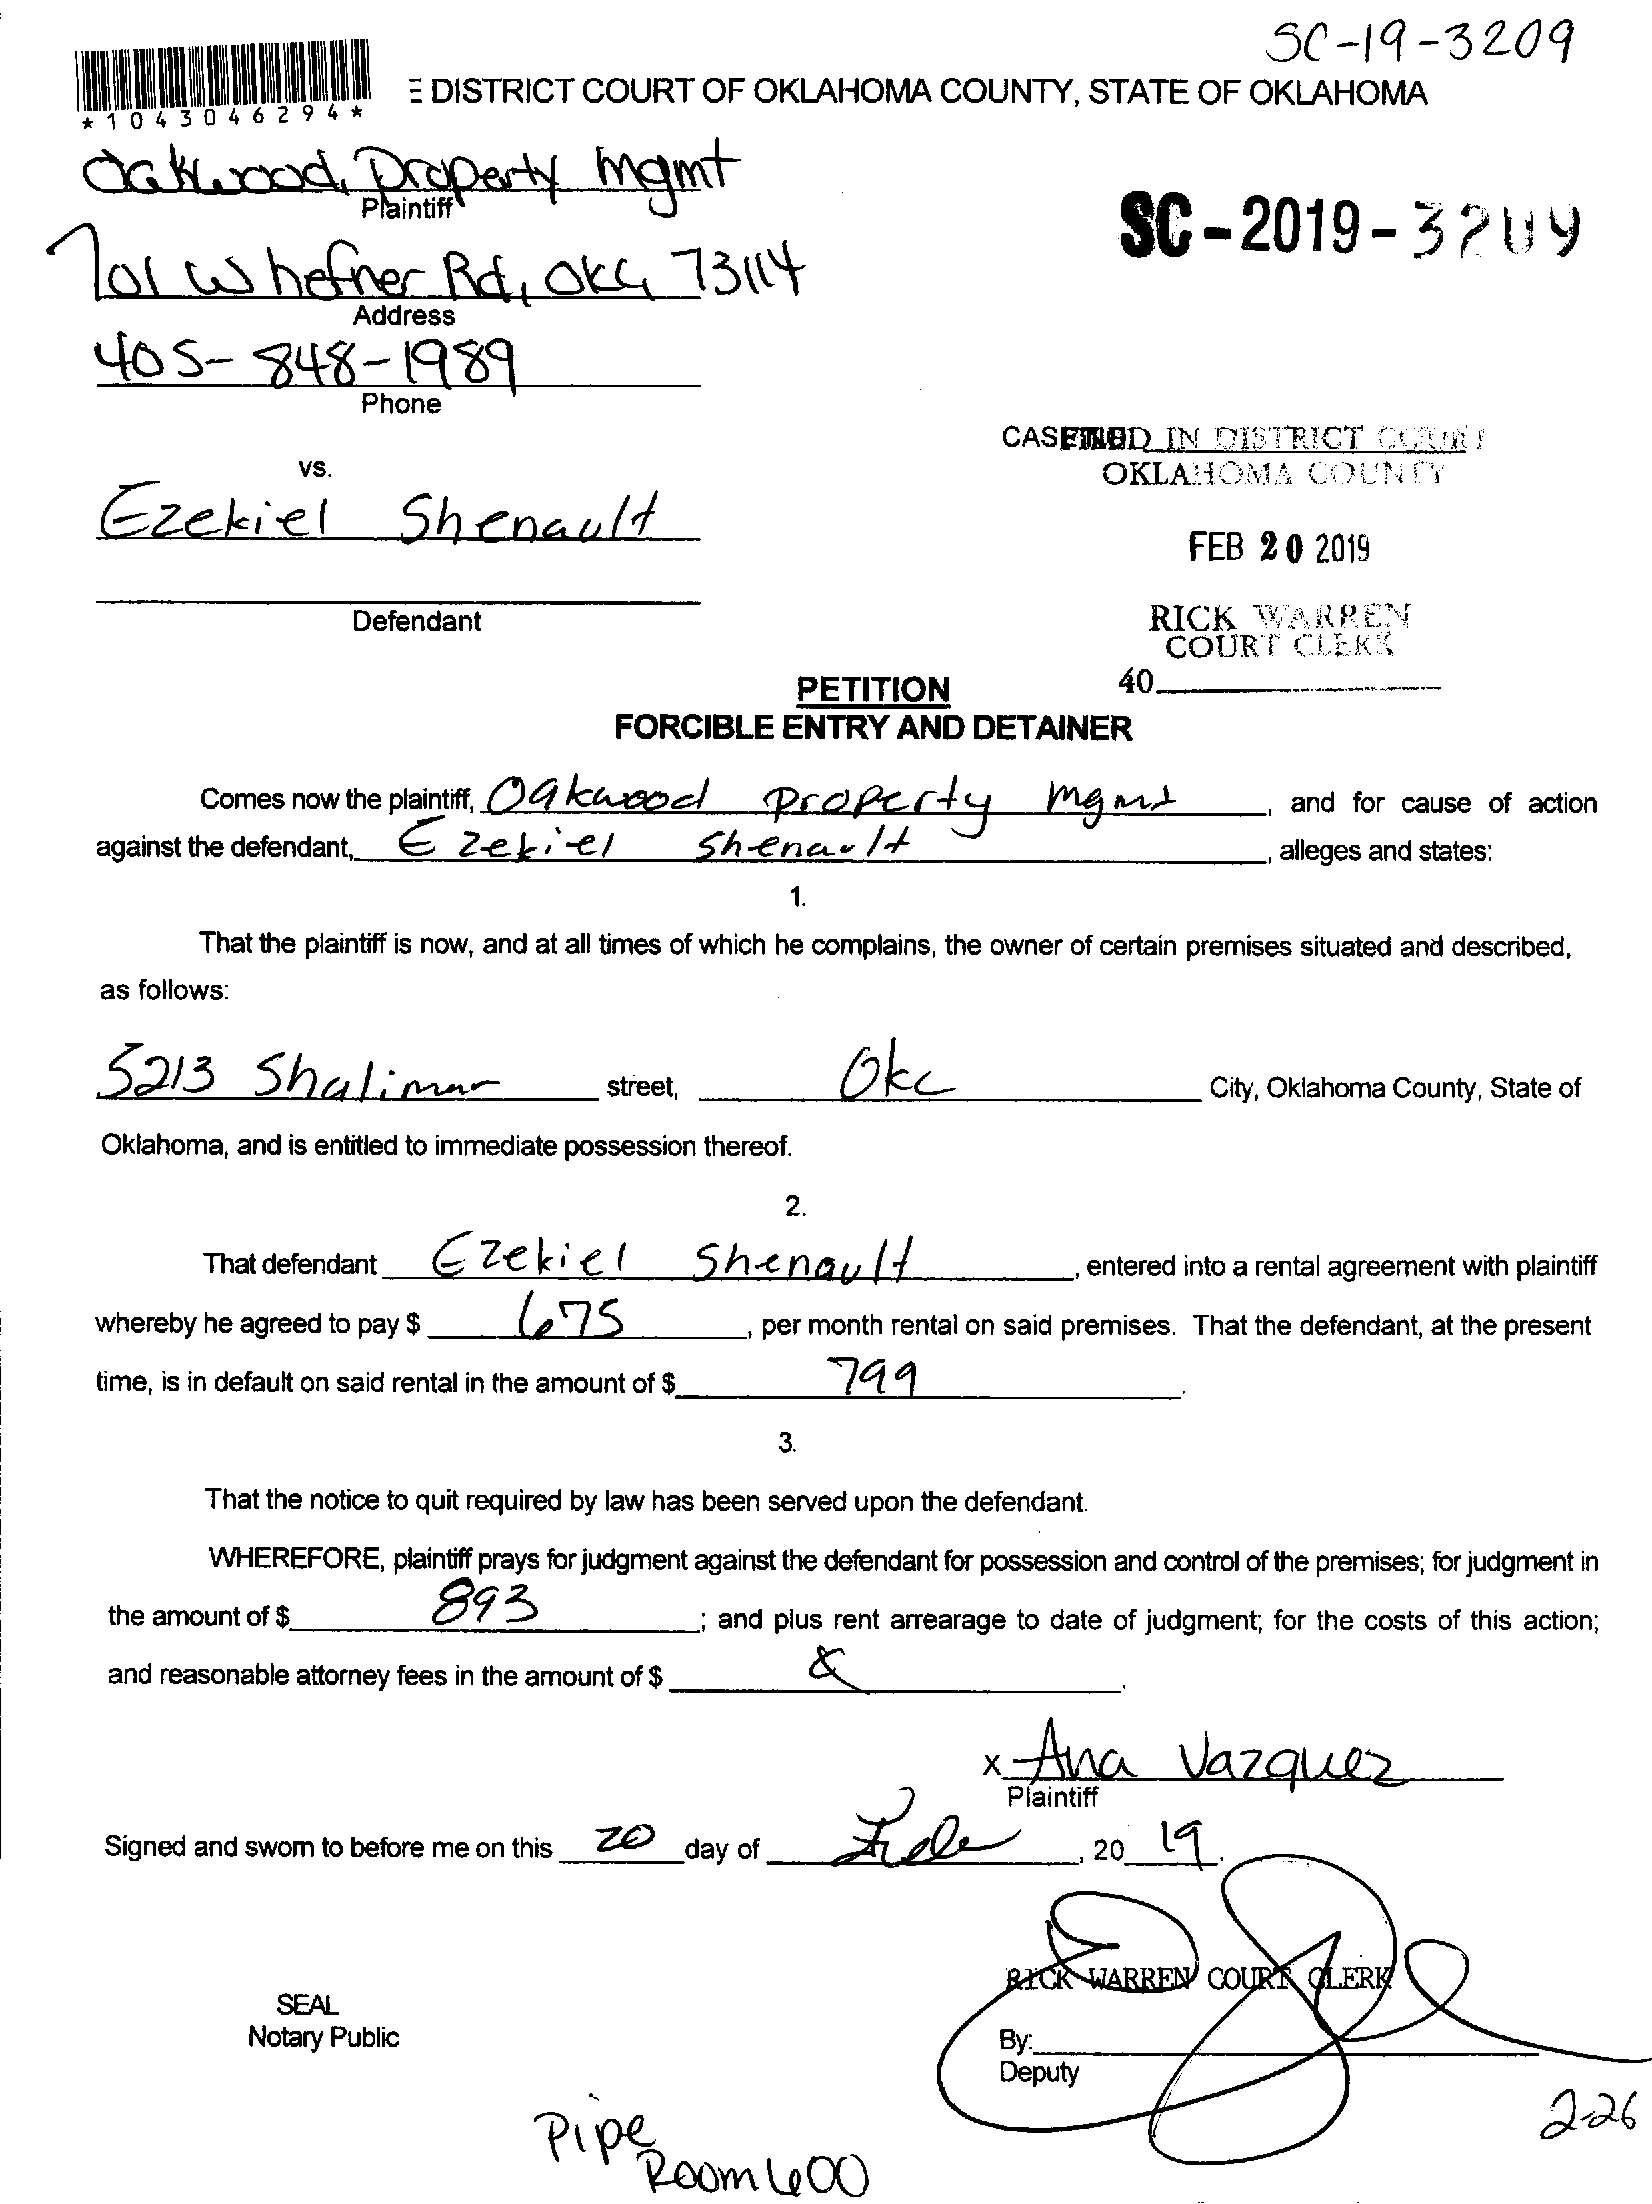 SC-19-3209
E DISTRICT COURT OF OKLAHOMA COUNTY, STATE OF OKLAHOMA
*1043046294*
Oakwood Property Mgmt
Plaintiff
SC-2019-3209
701 W hefner Rd, OKC, 73114
Address
405-848-1989
Phone
CASE FILED IN DISTRICT COURT
OKLAHOMA COUNTY
vs.
Ezekiel Shenault
FEB 20 2019
Defendant
RICK WARREN
COURT CLERK
40
PETITION
FORCIBLE ENTRY AND DETAINER
Comes now the plaintiff, Oakwood property mgmt, and for cause of action
against the defendant, Ezekiel Shenault, alleges and states:
1.
That the plaintiff is now, and at all times of which he complains, the owner of certain premises situated and described,
as follows:
5213 Shalimar street, Okc City, Oklahoma County, State of
Oklahoma, and is entitled to immediate possession thereof.
2.
That defendant Ezekiel Shenault, entered into a rental agreement with plaintiff
whereby he agreed to pay $ 675, per month rental on said premises. That the defendant, at the present
time, is in default on said rental in the amount of $ 799.
3.
That the notice to quit required by law has been served upon the defendant.
WHEREFORE, plaintiff prays for judgment against the defendant for possession and control of the premises; for judgment in
the amount of $ 893; and plus rent arrearage to date of judgment; for the costs of this action;
and reasonable attorney fees in the amount of $ .
x Ana Vazquez
Plaintiff
Signed and sworn to before me on this 20 day of Feb, 20 19.
RICK WARREN COURT CLERK
SEAL
Notary Public
By:
Deputy
2-26
Pipe
Room 600